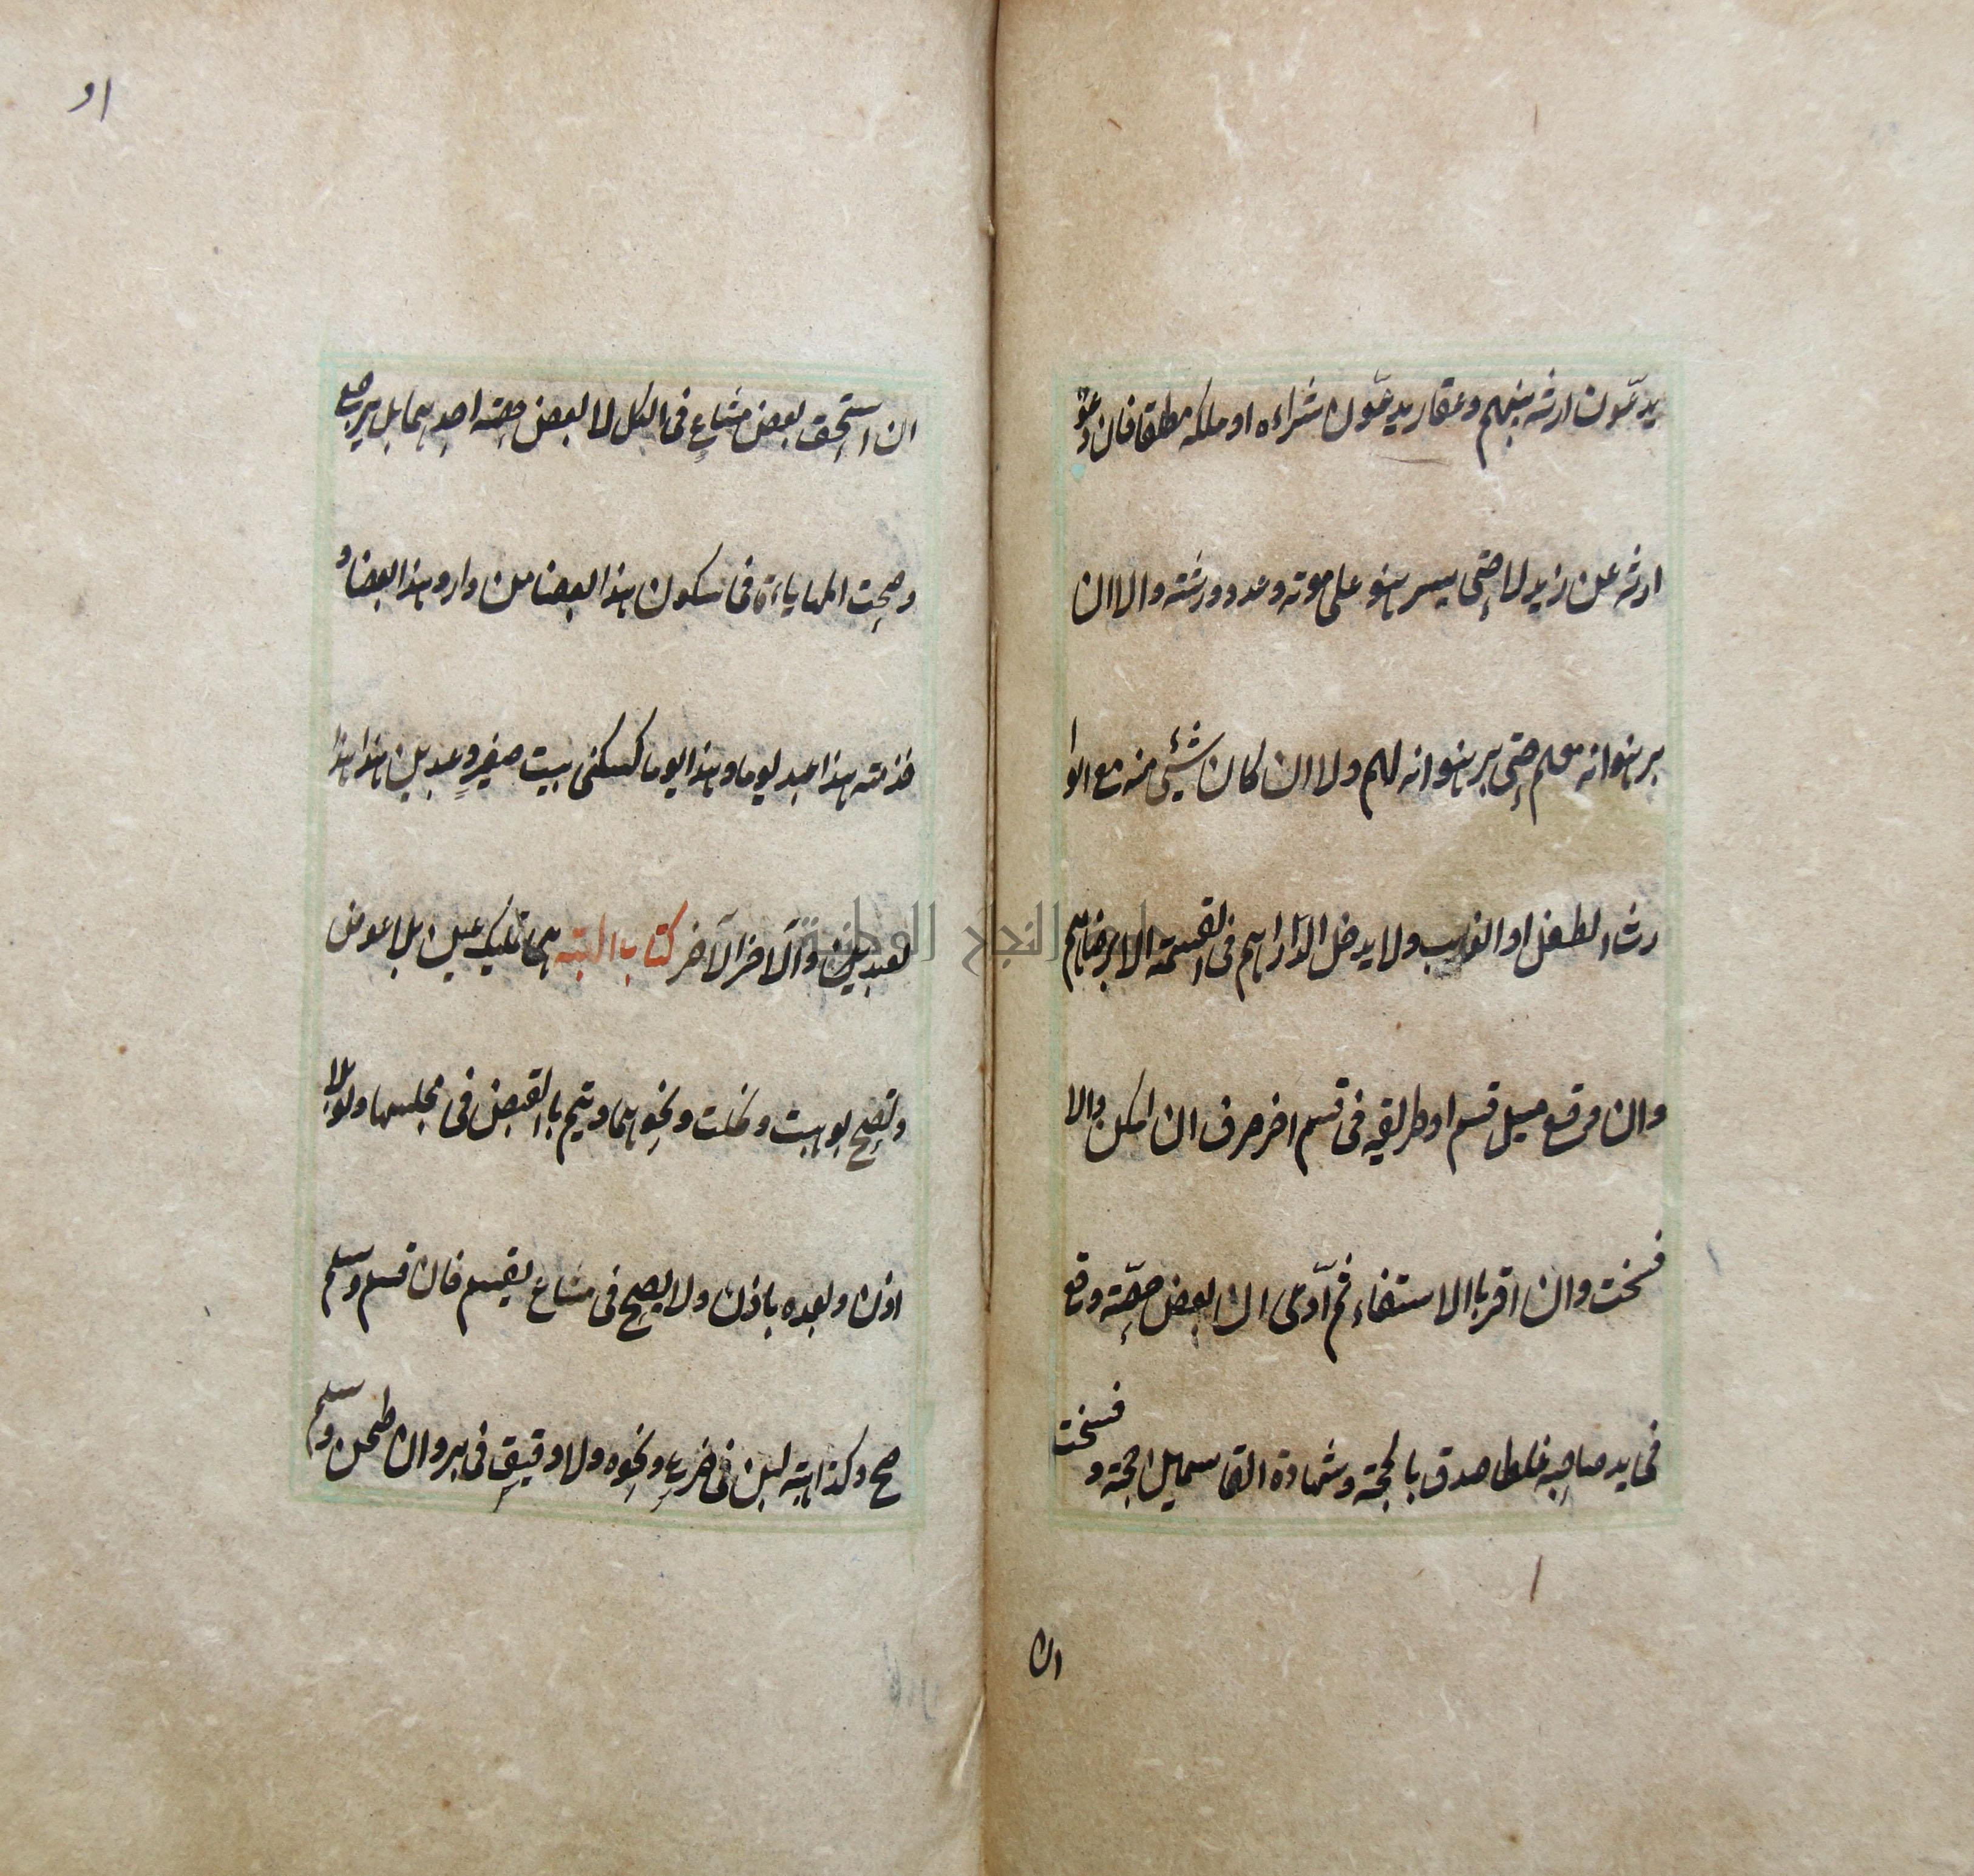 يدعّون ارثه بينهم وعقار يدعّون شراءه او ملكه مطلقا فان دعوٰ
ارثه عن زيد لا حتى يبرهنو على موته وعدد ورثته والا ان
برهنوا انه معهم حتى برهنوا انه لهم ولا ان كان شيئى منه مع الوا
رث الطفل او الغايب ولا يدخل الدّراهم فى القسمة الا برضاهم
وان وقع مسيل قسم او طريقه فى قسم اخر صرف ان امكن والا
فسخت وان اقر باالاستيفاء ثم ادّعى ان بعض حصّته وقع
فى يد صاحبه غلطا صدق بالحجّة وشهادة القاسمين حجّة و فسخت
ان
ان استحق بعض مشاع فى الكل لا بعض حصّة احدهما بل يرجع
وصحت المهاياءة فى سكون هذا بعضا من دار وهذا بعضا و
خدمته هذا عبد يوما وهذا يوما كسكنى بيت صغير وعبدين هذا هذا
لعبدين والآخر الآخر كتاب الهبة هى تمليك عين بلا عوض
وتصح بوهبت ونحلت ونحوهما ويتم باالقبض فى مجلسها ولو بلا
اذن وبعده باذن ولا يصح فى مشاع يقسم فان قسم وسلم
صح وكذا هبة لبن فى ضرع ونحوه ولا دقيق فى بر وان طحن وسلم
النجاح الوطنية